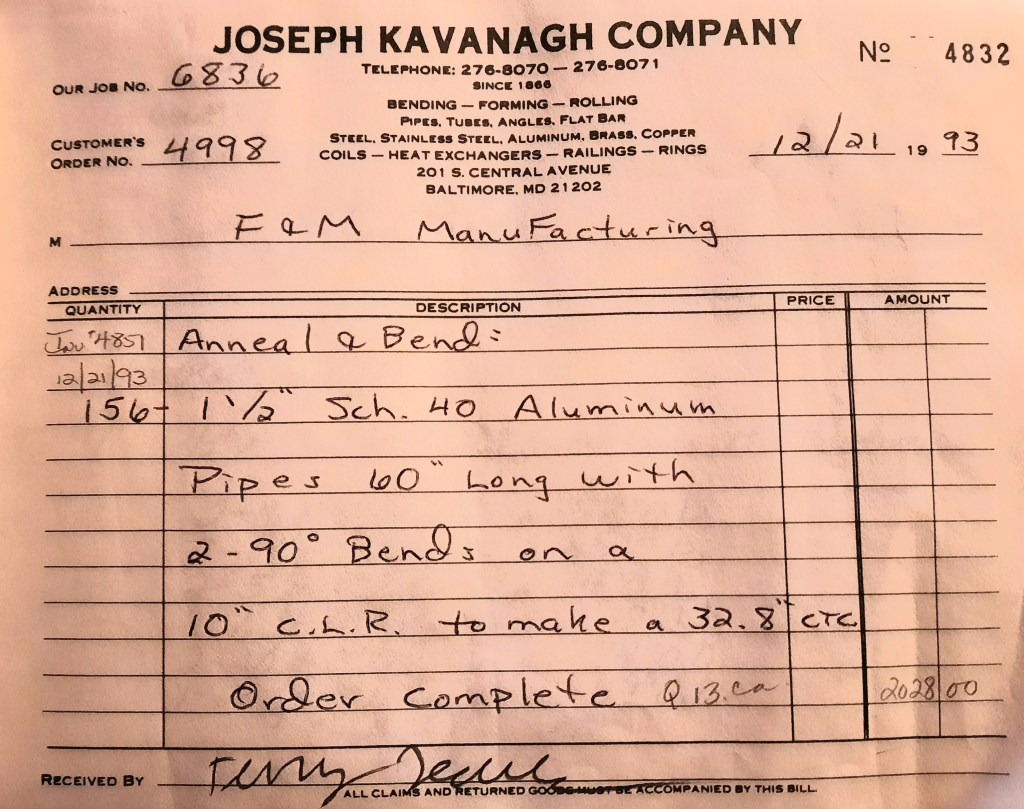 JOSEPH KAVANAGH COMPANY
Nº 4832
TELEPHONE: 276-8070 — 276-8071
SINCE 1866
OUR JOB NO. 6836
BENDING — FORMING — ROLLING
PIPES, TUBES, ANGLES, FLAT BAR
STEEL, STAINLESS STEEL, ALUMINUM, BRASS, COPPER
CUSTOMER'S ORDER NO. 4998
COILS — HEAT EXCHANGERS — RAILINGS — RINGS
12/21 19 93
201 S. CENTRAL AVENUE
BALTIMORE, MD 21202
M F & M Manufacturing
ADDRESS
QUANTITY DESCRIPTION PRICE AMOUNT
Inv #4851 Anneal & Bend:
12/21/93
156- 1 1/2" Sch. 40 Aluminum
Pipes 60" Long with
2-90° Bends on a
10" C.L.R. to make a 32.8" CTC
Order Complete @ 13. ea 2028 00
RECEIVED BY Terry
ALL CLAIMS AND RETURNED GOODS MUST BE ACCOMPANIED BY THIS BILL.